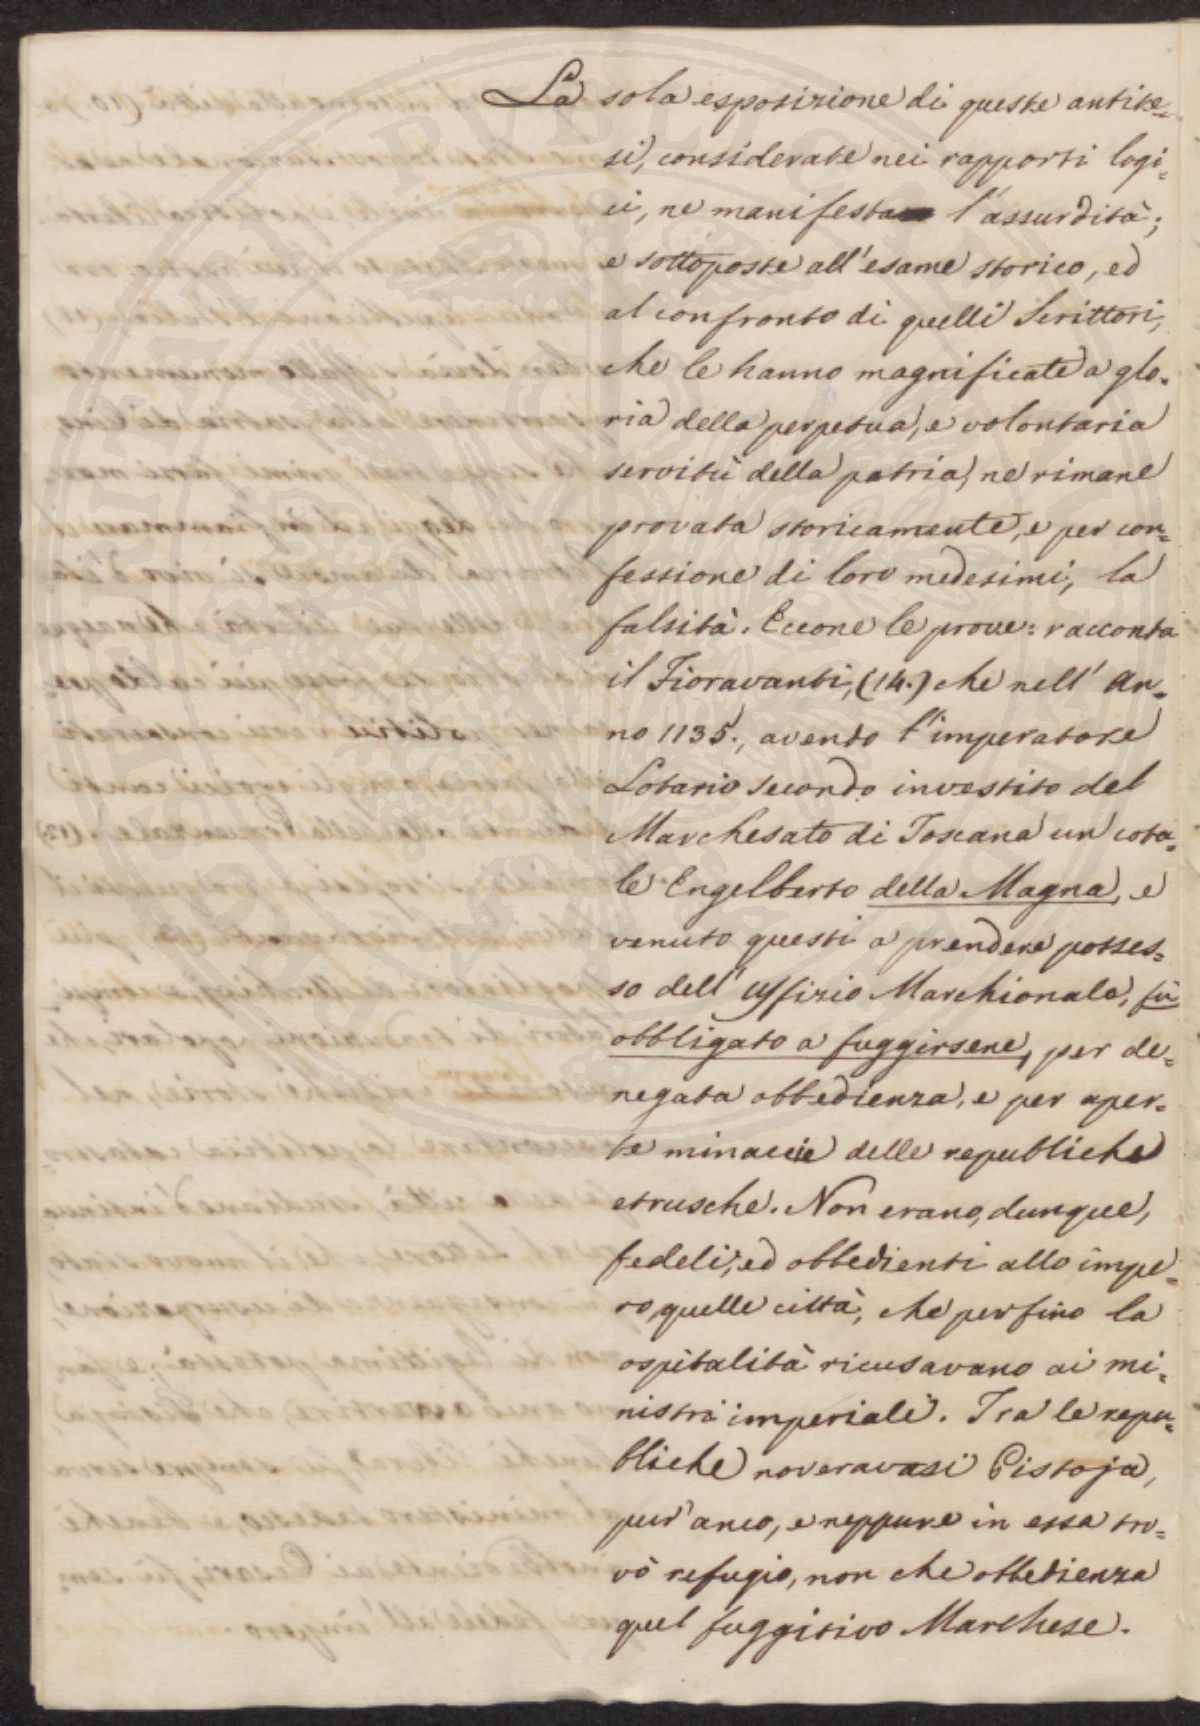 La sola esposizione di queste antite=
si, considerate nei rapporti logi=
ci, ne manifesta l'assurdità;
e sottoposte all'esame storico, ed
al confronto di quelli Scrittori,
che le hanno magnificate a glo=
ria della perpetua, e volontaria
servitù della patria, ne rimane
provata storicamente, e per con=
fessione di loro medesimi, la
falsità. Eccone le prove: racconta
il Fioravanti, (14.) che nell' An=
no 1135., avendo l'imperatore
Lotario secondo investito del
Marchesato di Toscana un cota=
le Engelberto della Magna, e
venuto questi a prendere posses=
so dell' Uffizio Marchionale, fù
obbligato a fuggirsene, per de=
negata obbedienza, e per aper=
te minaccie delle republiche
etrusche. Non erano, dunque,
fedeli, ed obbedienti allo impe=
ro, quelle città, che perfino la
ospitalità ricusavano ai mi=
nistri imperiali. Tra le repu=
bliche noveravasi Pistoja,
pur' anco, e neppure in essa tro=
vò refugio, non che obbedienza
quel fuggitivo Marchese.